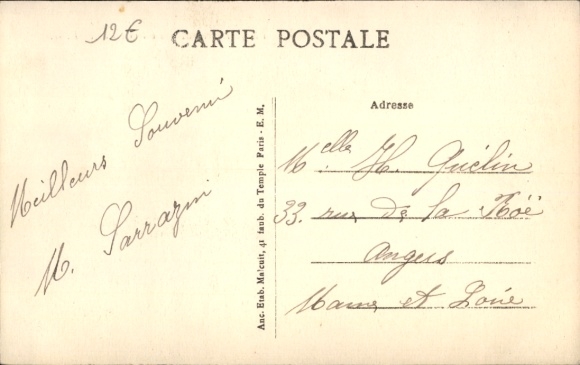 12€
CARTE POSTALE
Meilleurs Souvenir
M. Sarrazin
Anc. Etab. Malcuit, 41 faub. du Temple Paris - E. M.
Adresse
Melle. H. Guélin
33. rue de la Roë
Angers
Maine et Loire